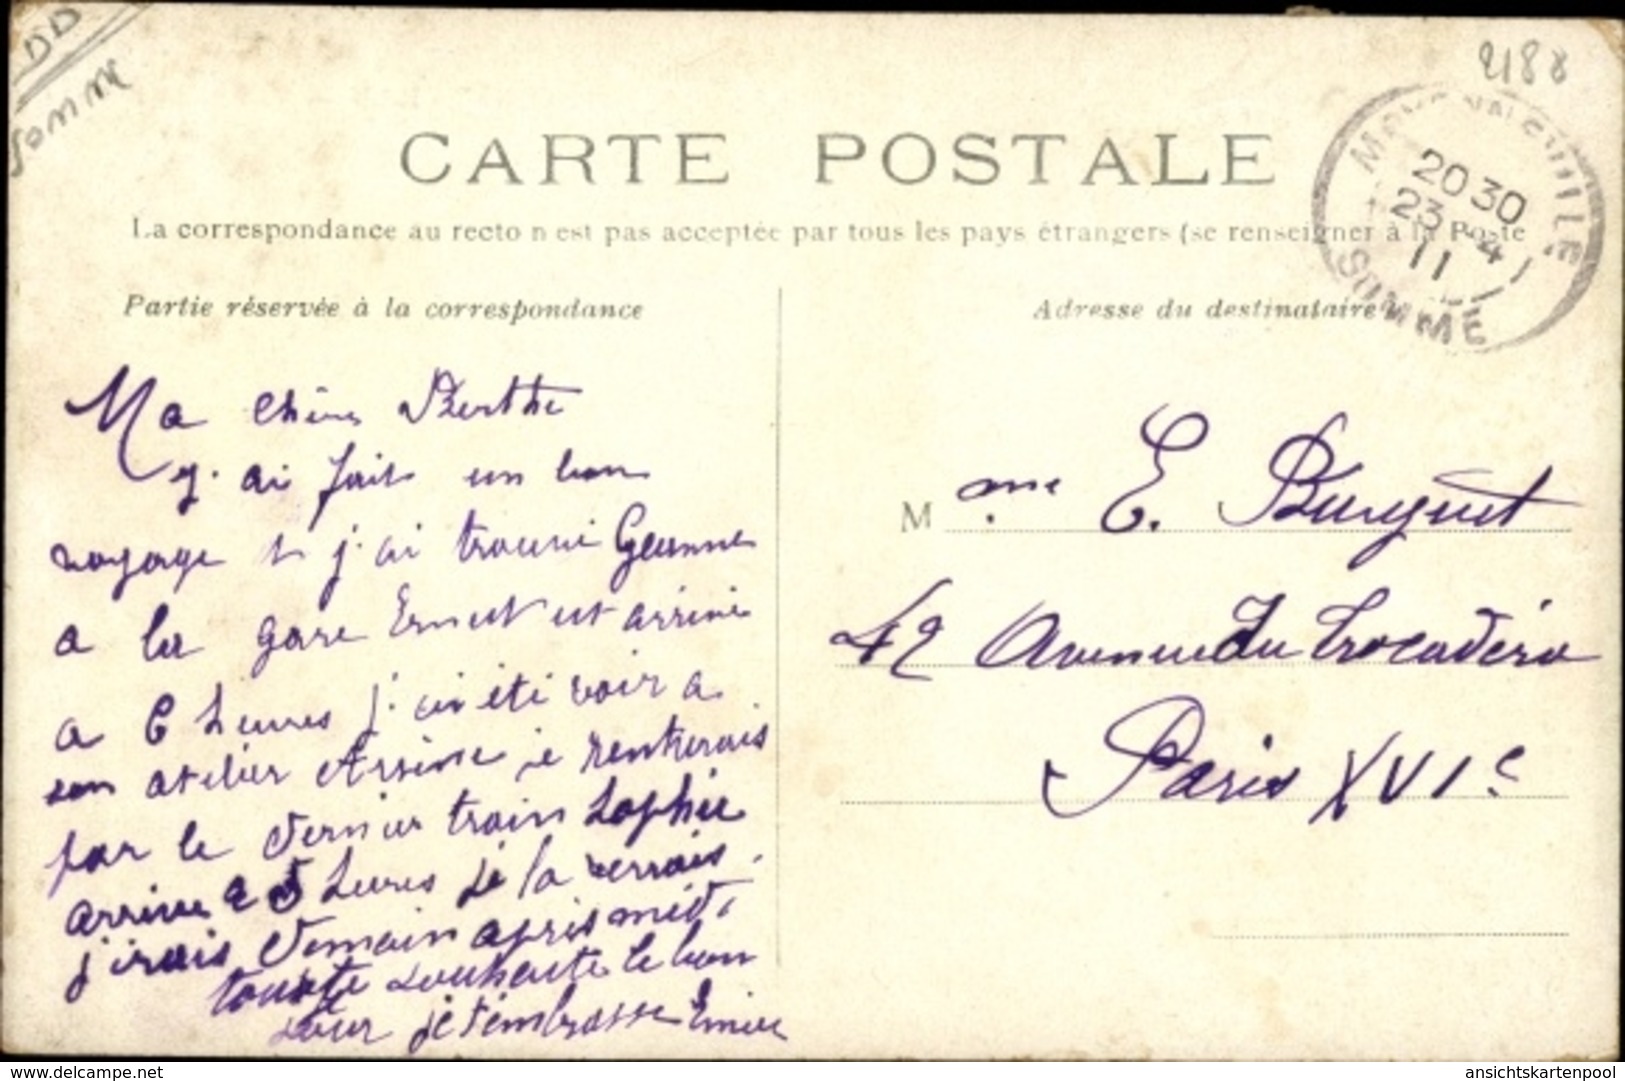 DD
Somme
2188
CARTE POSTALE
La correspondance au recto n'est pas acceptée par tous les pays étrangers (se renseigner à la Poste
Partie réservée à la correspondance
Adresse du destinataire
20 30
23 - 4
11
SOMME
Ma chère Berthe
j'ai fait un bon
voyage j'ai trouvé
a la gare Ernest est arrivé
a 6 heures j'ai été voir a
son atelier Arsène je rentrerais
par le dernier train Sophie
arrive a 5 heures je la verrais
j'irais demain après midi
souhaite le bon
jour je t'embrasse
Mme E. Burguet
42 Avenue du Trocadéro
Paris XVIe
delcampe.net
The Collector's Marketplace
ansichtskartenpool